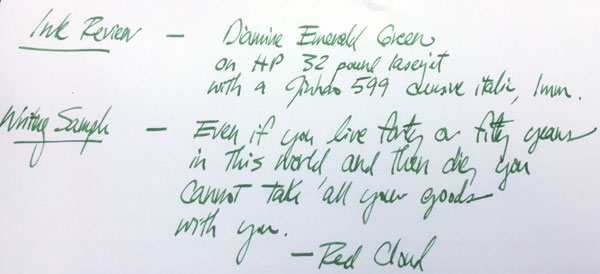 Ink Review — Diamine Emerald Green
on HP 32 pound laserjet
with a Jinhao 599 cursive italic, 1mm.
Writing Sample — Even if you live forty or fifty years
in this world, and then die, you
cannot take all your goods
with you.
— Red Cloud